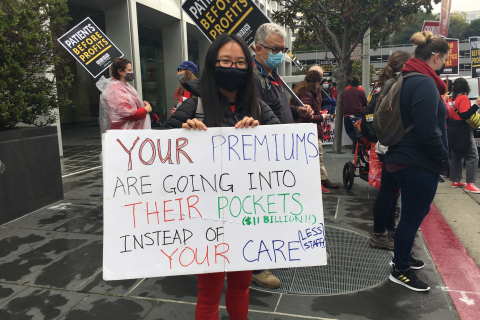 PATIENTS
BEFORE
PROFITS
PATIENTS
BEFORE
PROFITS
YOUR PREMIUMS
ARE GOING INTO
THEIR POCKETS
($11 BILLION!!)
INSTEAD OF
YOUR CARE (LESS
STAFF)